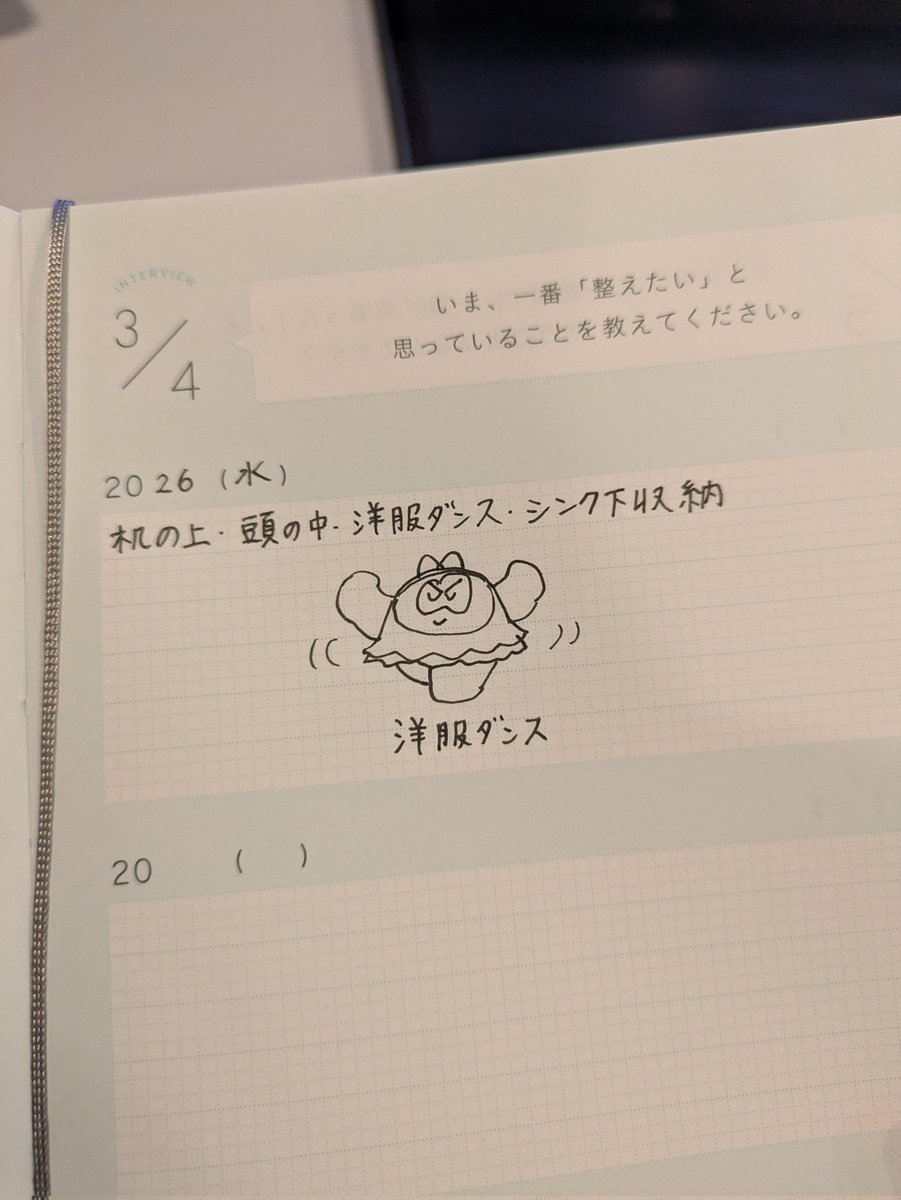 INTERVIEW
3/4
いま、一番「整えたい」と
思っていることを教えてください。
2026(水)
机の上・頭の中・洋服ダンス・シンク下収納
洋服ダンス
20 ( )